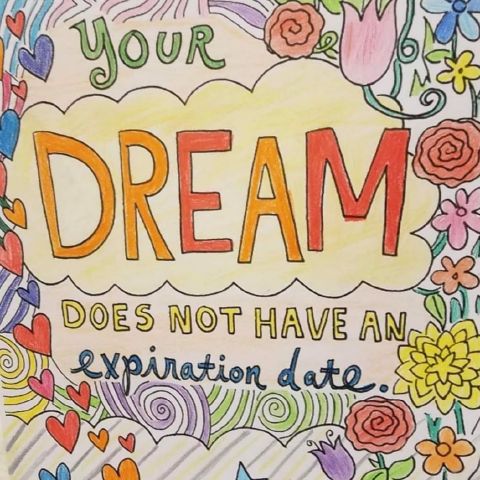 YOUR
DREAM
DOES NOT HAVE AN
expiration date.